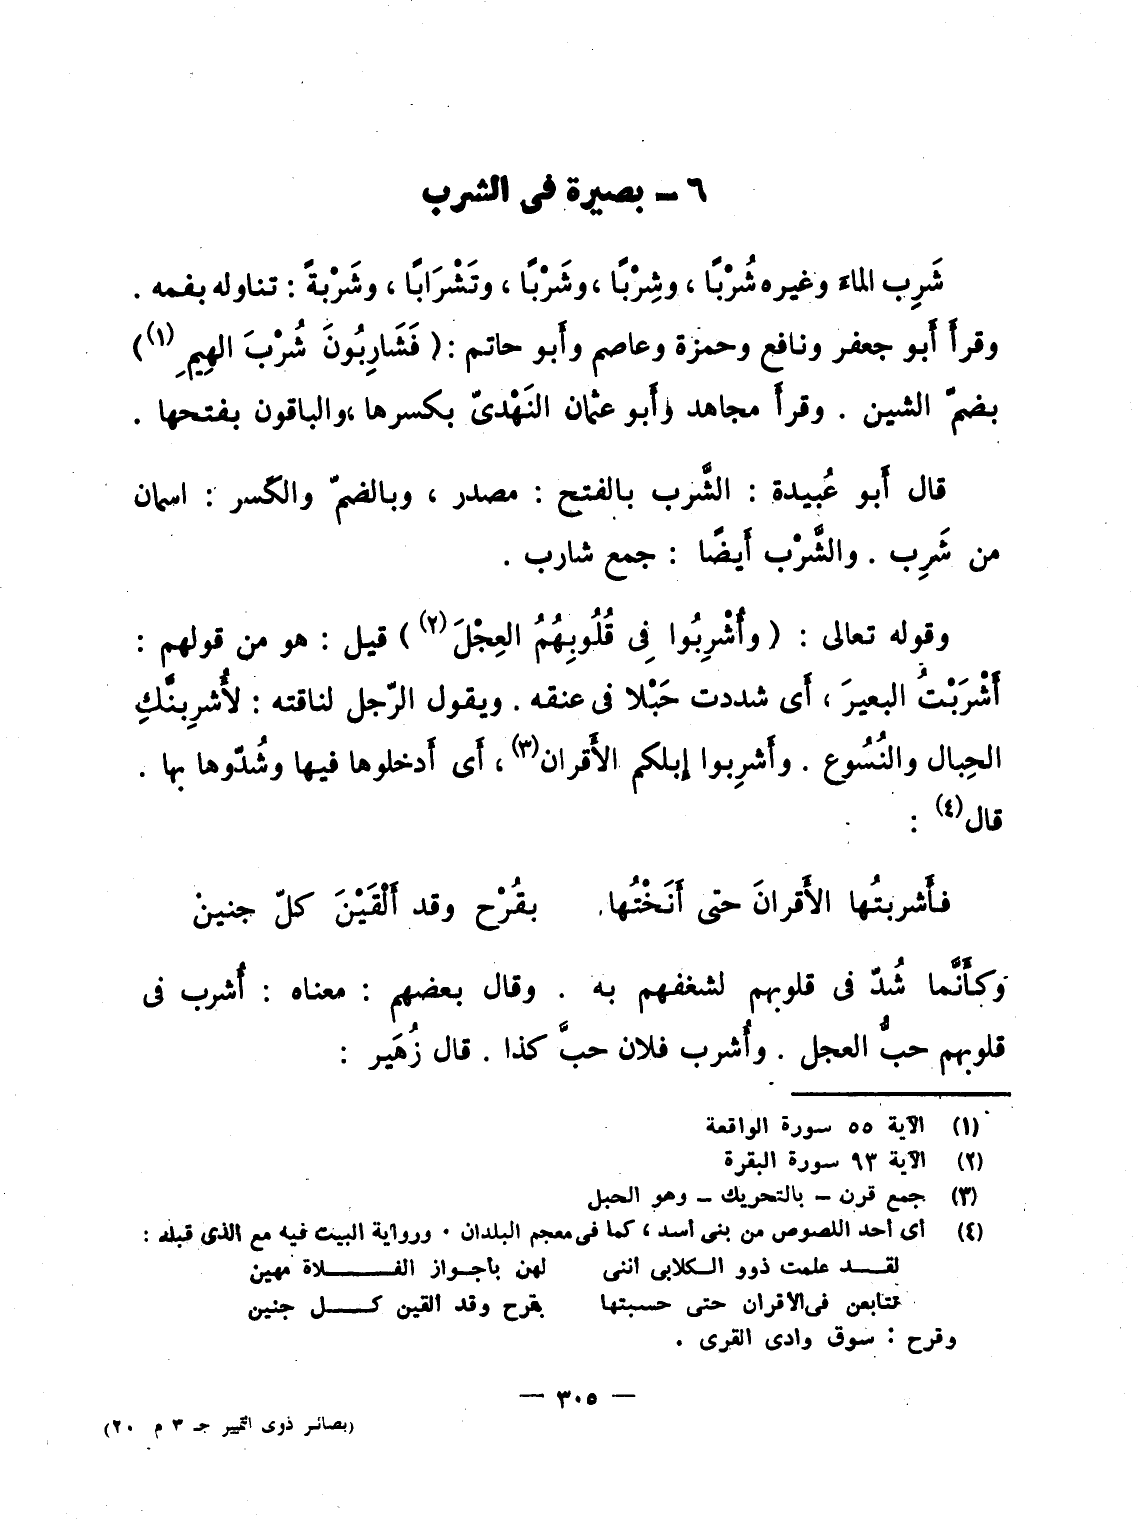 ٦ – بصيرة فى الشرب
شَرِب الماءَ وغيره شُرْبًا ، وشِرْبًا ، وشَرْبًا ، وتَشْرَابًا ، وشَرْبةً : تناوله بفمه .
وقرأَ أَبو جعفر ونافع وحمزة وعاصم وأَبو حاتم : ( فَشَارِبُونَ شُرْبَ الهِيمِ (١) )
بضمّ الشين . وقرأَ مجاهد وأَبو عثمان النَهْدىّ بكسرها ، والباقون بفتحها .
قال أَبو عُبيدة : الشَّرب بالفتح : مصدر ، وبالضمّ والكسر : اسمان
من شَرِب . والشَّرْب أَيضًا : جمع شارب .
وقوله تعالى : ( وأُشْرِبُوا فِى قُلُوبِهُمُ العِجْلَ (٢) ) قيل : هو من قولهم :
أَشْرَبْتُ البعيرَ ، أَى شددت حَبْلا فى عنقه . ويقول الرّجل لناقته : لأُشرِبنَّكِ
الحِبال والنُسُوع . وأَشرِبوا إبلكم الأَقران (٣) ، أَى أَدخلوها فيها وشُدّوها بها .
قال (٤) :
فأَشربتُها الأَقرانَ حتى أَنَخْتُها بقُرْح وقد أَلْقَيْنَ كلّ جنين
وكأَنَّما شُدّ فى قلوبهم لشغفهم به . وقال بعضهم : معناه : أُشرب فى
قلوبهم حبُّ العجل . وأُشرب فلان حبَّ كذا . قال زُهَير :
(١) الآية ٥٥ سورة الواقعة
(٢) الآية ٩٣ سورة البقرة
(٣) جمع قرن – بالتحريك – وهو الحبل
(٤) أى أحد اللصوص من بنى أسد ، كما فى معجم البلدان . ورواية البيت فيه مع الذى قبله :
لقد علمت ذوو الكلابى اننى لهن بأجواز الفلاة مهين
تتابعن فى الأقران حتى حسبتها بقرح وقد القين كل جنين
وقرح : سوق وادى القرى .
— ٣٠٥ —
(بصائر ذوى التمييز جـ ٣ م ٢٠)